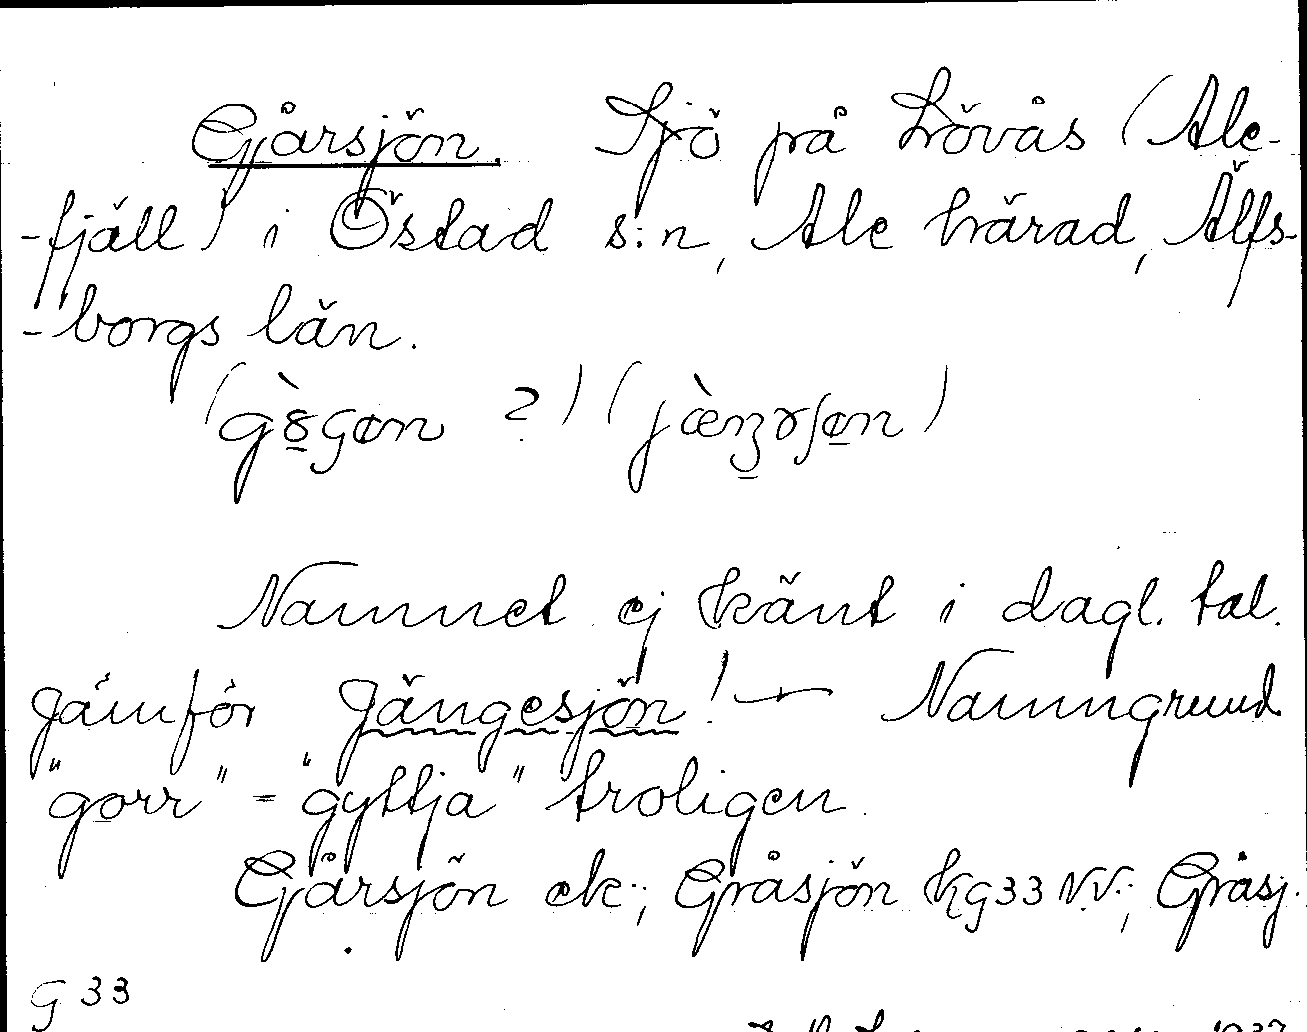 Gårsjön. Sjö på Lövås (Ale-
-fjäll) i Östad s:n, Ale härad, Älfs-
-borgs län.
Namnet ej känt i dagl. tal.
Jämför Jängesjön! — Namngrund
"gorr" = "gyttja" troligen.
Gårsjön ek.; Gråsjön kg 33 N.V.; Gråsj.
G 33
1937